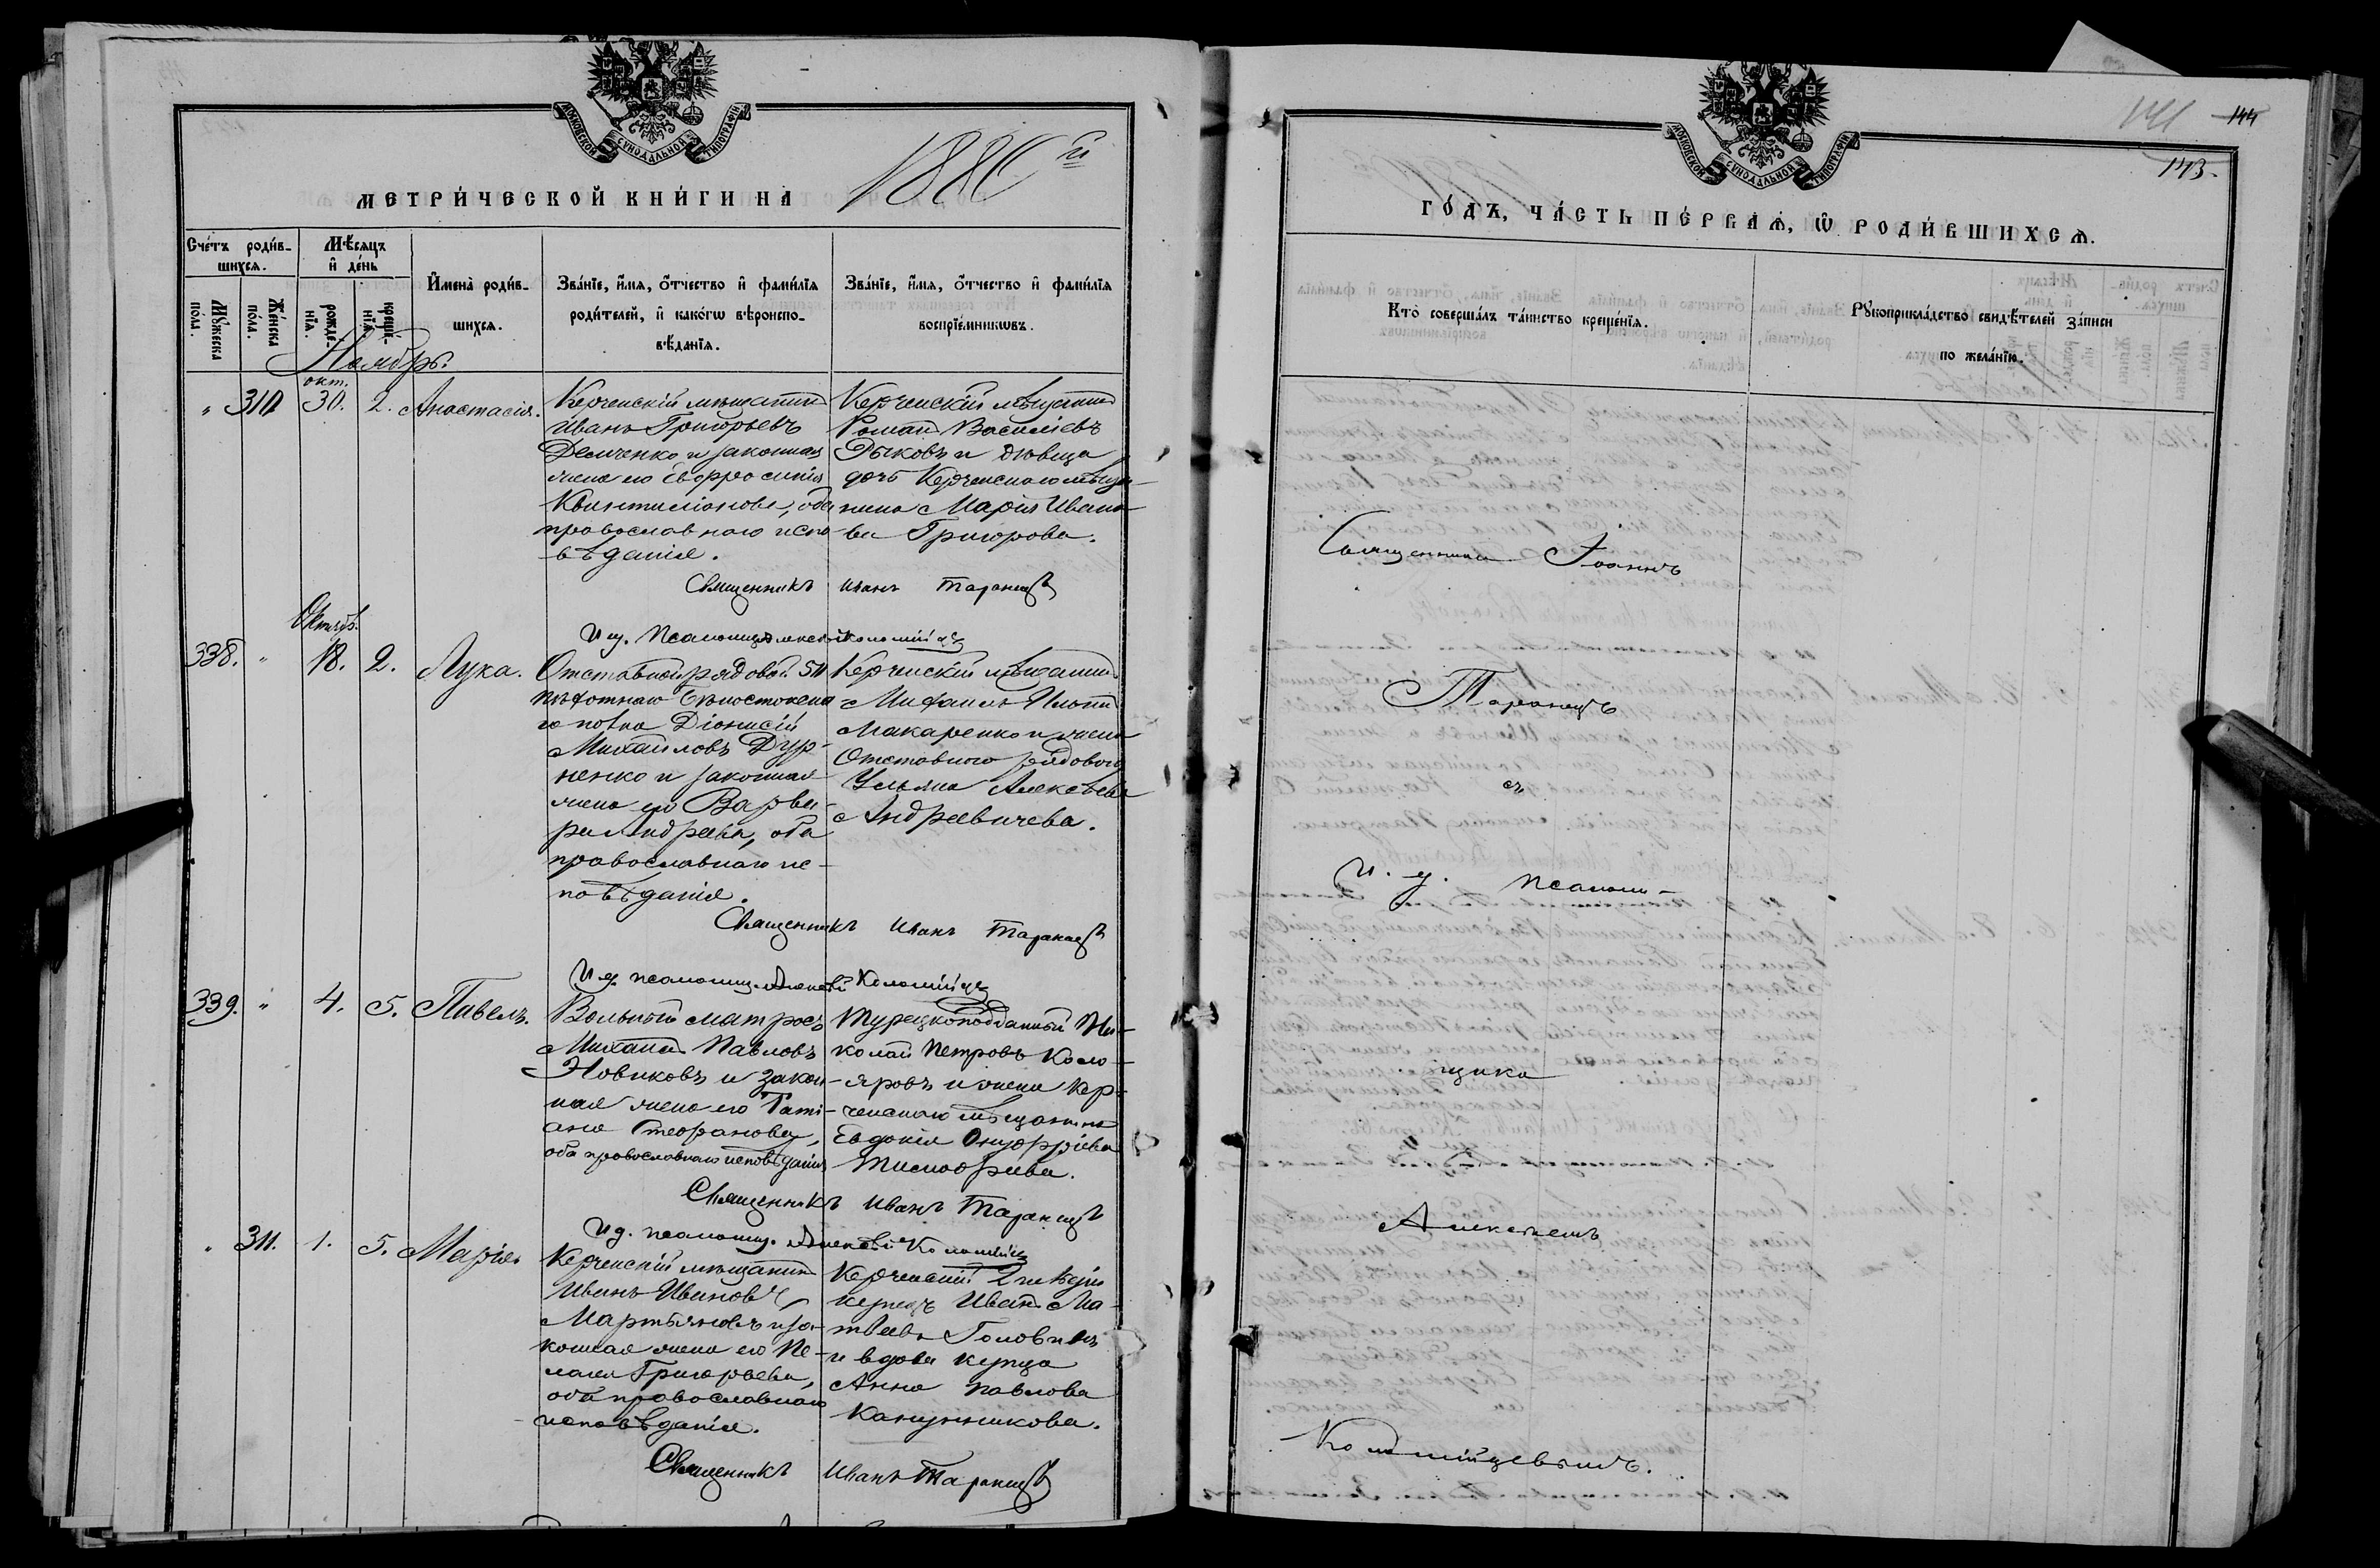 МОСКОВСКОЙ СУНОДАЛЬНОЙ ТИПОГРАФІИ
МЕТРИ́ЧЕСКОЙ КНИ́ГИ НА 1880 й
Сче́тъ роди́в-
шихсѧ.
Мѣ́сѧцъ
и҆ де́нь
Мꙋ́жеска
по́ла.
Же́нска
по́ла.
рожде́-
нїѧ.
креще́-
нїѧ.
И҆мена̀ роди́в-
шихсѧ.
Зва́нїе, и҆́мѧ, о҆́тчество и҆ фами́лїѧ
роди́телей, и҆ како́гѡ вѣроиспо-
вѣ́данїѧ.
Зва́нїе, и҆́мѧ, о҆́тчество и҆ фами́лїѧ
воспрїе́мникѡвъ.
Ноябрь.
окт.
" 310 30. 2. Анастасія.
Керченскій мѣщанинъ
Иванъ Григорьевъ
Демченко и законная
жена его Евфросинія
Квинтиліонова, оба
православнаго испо-
вѣданія.
Керченскій мѣщанинъ
Романъ Василіевъ
Рыковъ и дѣвица
дочь Керченскаго мѣща-
нина Марія Ивано-
ва Григорова.
Священникъ Иванъ Таранецъ
И д. псаломщ. Алексѣй Коломійцевъ
Октябр.
338. " 18. 2. Лука.
Отставной рядовой 51
пѣхотнаго Бѣлостокска
го полка Діонисій
Михайловъ Дур-
ненко и законная
жена его Варва-
ра Андреева, оба
православнаго ис-
повѣданія.
Керченскій мѣщанинъ
Михаилъ
Макаренко и жена
Отставного рядового
Ульяна Алексѣева
Андреевичева.
Священникъ Иванъ Таранецъ
И д. псаломщ. Алексѣй Коломійцевъ
339. " 4. 5. Павелъ.
Вольный матросъ
Михаилъ Павловъ
Новиковъ и закон-
ная жена его Тати-
ана Стефанова,
оба православнаго исповѣданія
Турецкоподданный Ни-
колай Петровъ Коло-
яровъ и жена Кер-
ченскаго мѣщанина
Евдокія Онуфріева
Священникъ Иванъ Таранецъ
И д. псаломщ. Алексѣй Коломійцевъ
" 311. 1. 5. Марія.
Керченскій мѣщанинъ
Иванъ Ивановъ
Мартыновъ и за-
конная жена его Пе-
лагея Григорьева,
оба православнаго
исповѣданія.
Керченскій 2 гильдіи
купецъ Иванъ Ма-
твеевъ Головинъ
и вдова купца
Анна Павлова
Канунникова.
Священникъ Иванъ Таранецъ
141 144
143.
МОСКОВСКОЙ СУНОДАЛЬНОЙ ТИПОГРАФІИ
ГО́ДЪ, ЧА́СТЬ ПЕ́РВАѦ, Ѡ҆ РОДИ́ВШИХСѦ.
Кто̀ соверша́лъ та́инство креще́нїѧ.
Рꙋкоприкла́дство свидѣ́телей за́писи
по жела́нїю.
Священникъ Іоаннъ
Таранецъ
съ
И. д. псалом-
щика
Алексѣемъ
Коломійцевымъ.